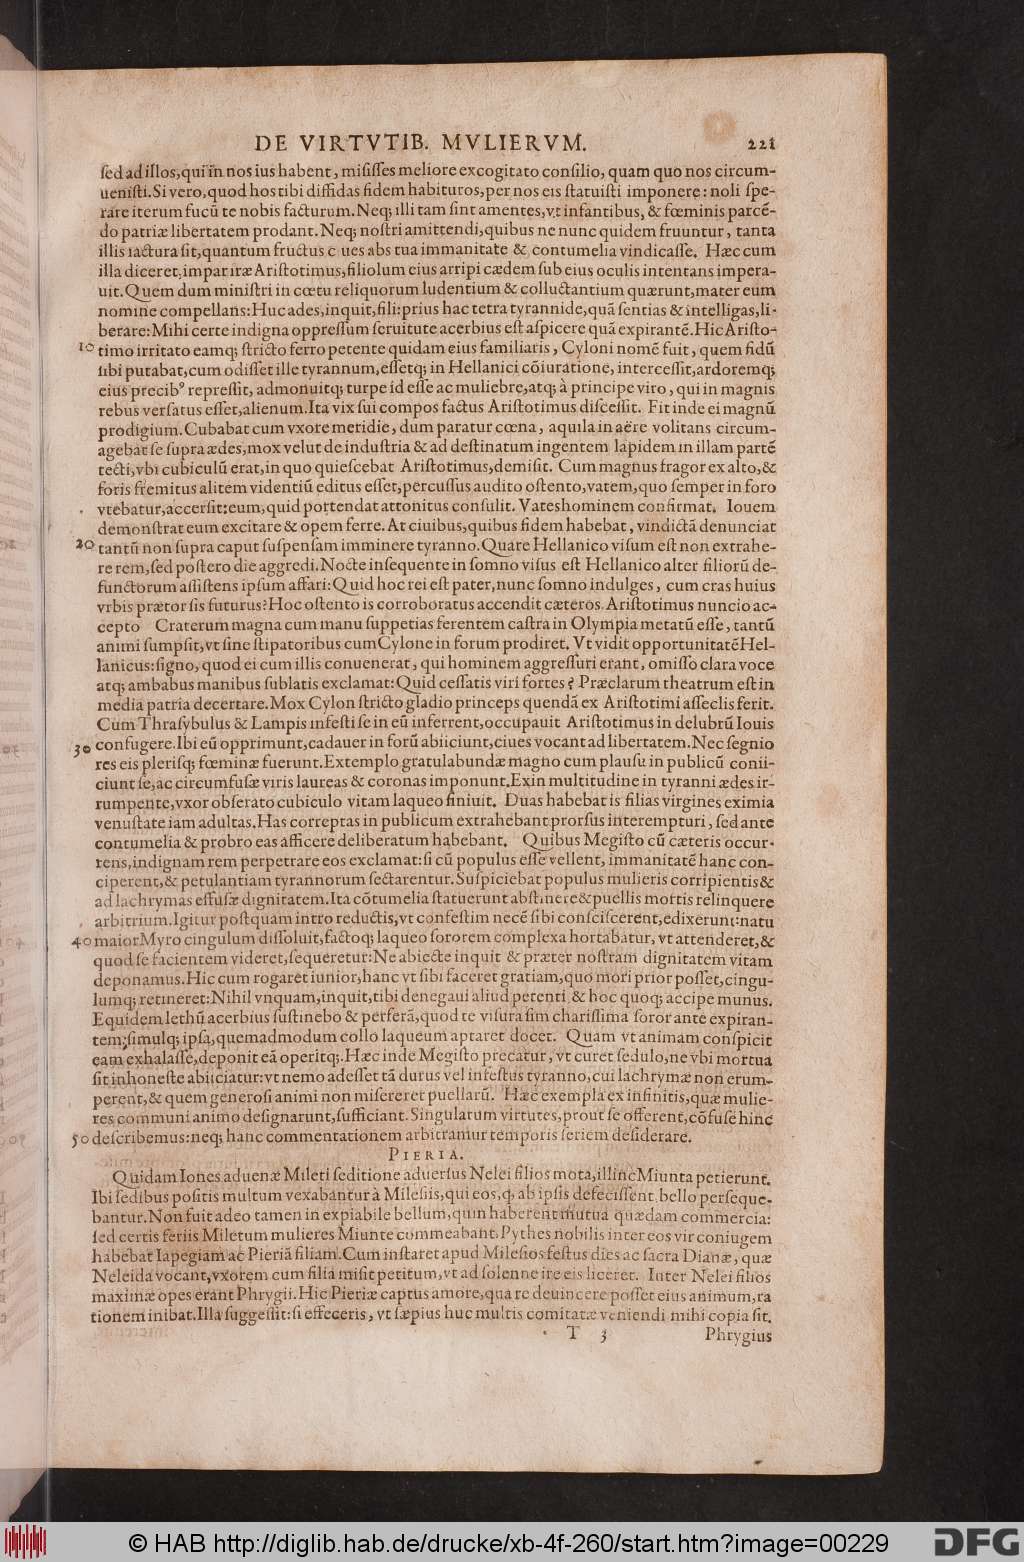 DE VIRTVTIB. MVLIERVM. 221
ſed ad illos, qui in nos ius habent, miſiſſes meliore excogitato conſilio, quam quo nos circum-
ueniſti. Si vero, quod hos tibi diffidas fidem habituros, per nos eis ſtatuiſti imponere: noli ſpe-
rare iterum fucũ te nobis facturum. Neq; illi tam ſint amentes, vt infantibus, & fœminis parcẽ-
do patriæ libertatem prodant. Neq; noſtri amittendi, quibus ne nunc quidem fruuntur, tanta
illis iactura ſit, quantum fructus c ues abs tua immanitate & contumelia vindicaſſe. Hæc cum
illa diceret, impar iræ Ariſtotimus, filiolum eius arripi cædem ſub eius oculis intentans impera-
uit. Quem dum miniſtri in cœtu reliquorum ludentium & colluctantium quærunt, mater eum
nomine compellans: Huc ades, inquit, fili: prius hac tetra tyrannide, quã ſentias & intelligas, li-
berare: Mihi certe indigna oppreſſum ſeruitute acerbius eſt aſpicere quã expirantẽ. Hic Ariſto-
10 timo irritato eamq; ſtricto ferro petente quidam eius familiaris, Cyloni nomẽ fuit, quem fidũ
ſibi putabat, cum odiſſet ille tyrannum, eſſetq; in Hellanici cõiuratione, interceſſit, ardoremq;
eius precib⁹ repreſſit, admonuitq; turpe id eſſe ac muliebre, atq; à principe viro, qui in magnis
rebus verſatus eſſet, alienum. Ita vix ſui compos factus Ariſtotimus diſceſſit. Fit inde ei magnũ
prodigium. Cubabat cum vxore meridie, dum paratur cœna, aquila in aëre volitans circum-
agebat ſe ſupra ædes, mox velut de induſtria & ad deſtinatum ingentem lapidem in illam partẽ
tecti, vbi cubiculũ erat, in quo quieſcebat Ariſtotimus, demiſit. Cum magnus fragor ex alto, &
foris fremitus alitem videntiũ editus eſſet, percuſſus audito oſtento, vatem, quo ſemper in foro
vtebatur, accerſit: eum, quid portendat attonitus conſulit. Vates hominem confirmat. Iouem
demonſtrat eum excitare & opem ferre. At ciuibus, quibus fidem habebat, vindictã denunciat
20 tantũ non ſupra caput ſuſpenſam imminere tyranno. Quare Hellanico viſum eſt non extrahe-
re rem, ſed poſtero die aggredi. Nocte inſequente in ſomno viſus eſt Hellanico alter filiorũ de-
functorum aſſiſtens ipſum affari: Quid hoc rei eſt pater, nunc ſomno indulges, cum cras huius
vrbis prætor ſis futurus? Hoc oſtento is corroboratus accendit cæteros. Ariſtotimus nuncio ac-
cepto Craterum magna cum manu ſuppetias ferentem caſtra in Olympia metatũ eſſe, tantũ
animi ſumpſit, vt ſine ſtipatoribus cum Cylone in forum prodiret. Vt vidit opportunitatẽ Hel-
lanicus: ſigno, quod ei cum illis conuenerat, qui hominem aggreſſuri erant, omiſſo clara voce
atq; ambabus manibus ſublatis exclamat: Quid ceſſatis viri fortes? Præclarum theatrum eſt in
media patria decertare. Mox Cylon ſtricto gladio princeps quendã ex Ariſtotimi aſſeclis ferit.
Cum Thraſybulus & Lampis infeſti ſe in eũ inferrent, occupauit Ariſtotimus in delubrũ Iouis
30 confugere. Ibi eũ opprimunt, cadauer in forũ abiiciunt, ciues vocant ad libertatem. Nec ſegnio
res eis pleriſq; fœminæ fuerunt. Extemplo gratulabundæ magno cum plauſu in publicũ conii-
ciunt ſe, ac circumfuſæ viris laureas & coronas imponunt. Exin multitudine in tyranni ædes ir-
rumpente, vxor obſerato cubiculo vitam laqueo finiuit. Duas habebat is filias virgines eximia
venuſtate iam adultas. Has correptas in publicum extrahebant prorſus interempturi, ſed ante
contumelia & probro eas afficere deliberatum habebant. Quibus Megiſto cũ cæteris occur-
rens, indignam rem perpetrare eos exclamat: ſi cũ populus eſſe vellent, immanitatẽ hanc con-
ciperent, & petulantiam tyrannorum ſectarentur. Suſpiciebat populus mulieris corripientis &
ad lachrymas effuſæ dignitatem. Ita cõtumelia ſtatuerunt abſtinere & puellis mortis relinquere
arbitrium. Igitur poſtquam intro reductis, vt confeſtim necẽ ſibi conſciſcerent, edixerunt: natu
40 maior Myro cingulum diſſoluit, factoq; laqueo ſororem complexa hortabatur, vt attenderet, &
quod ſe facientem videret, ſequeretur: Ne abiecte inquit & præter noſtram dignitatem vitam
deponamus. Hic cum rogaret iunior, hanc vt ſibi faceret gratiam, quo mori prior poſſet, cingu-
lumq; retineret: Nihil vnquam, inquit, tibi denegaui aliud petenti & hoc quoq; accipe munus.
Equidem lethũ acerbius ſuſtinebo & perferã, quod te viſura ſim chariſſima ſoror ante expiran-
tem; ſimulq; ipſa, quemadmodum collo laqueum aptaret docet. Quam vt animam conſpicit
eam exhalaſſe, deponit eã operitq;. Hæc inde Megiſto precatur, vt curet ſedulo, ne vbi mortua
ſit inhoneſte abiiciatur: vt nemo adeſſet tã durus vel infeſtus tyranno, cui lachrymæ non erum-
perent, & quem generoſi animi non miſereret puellarũ. Hæc exempla ex infinitis, quæ mulie-
res communi animo deſignarunt, ſufficiant. Singularum virtutes, prout ſe offerent, cõfuſe hinc
50 deſcribemus: neq; hanc commentationem arbitramur temporis ſeriem deſiderare.
PIERIA.
Quidam Iones aduenæ Mileti ſeditione aduerſus Nelei filios mota, illinc Miunta petierunt.
Ibi ſedibus poſitis multum vexabantur à Mileſiis, qui eos, q, ab ipſis defeciſſent, bello perſeque-
bantur. Non fuit adeo tamen in expiabile bellum, quin haberent mutua quædam commercia:
ſed certis feriis Miletum mulieres Miunte commeabant. Pythes nobilis inter eos vir coniugem
habebat Iapegiam ac Pieriã filiam. Cum inſtaret apud Mileſios feſtus dies ac ſacra Dianæ, quæ
Neleida vocant, vxorem cum filia miſit petitum, vt ad ſolenne ire eis liceret. Inter Nelei filios
maximæ opes erant Phrygii. Hic Pieriæ captus amore, qua re deuincere poſſet eius animum, ra
tionem inibat. Illa ſuggeſſit: ſi effeceris, vt ſæpius huc multis comitatæ veniendi mihi copia ſit.
T 3 Phrygius
© HAB http://diglib.hab.de/drucke/xb-4f-260/start.htm?image=00229
DFG